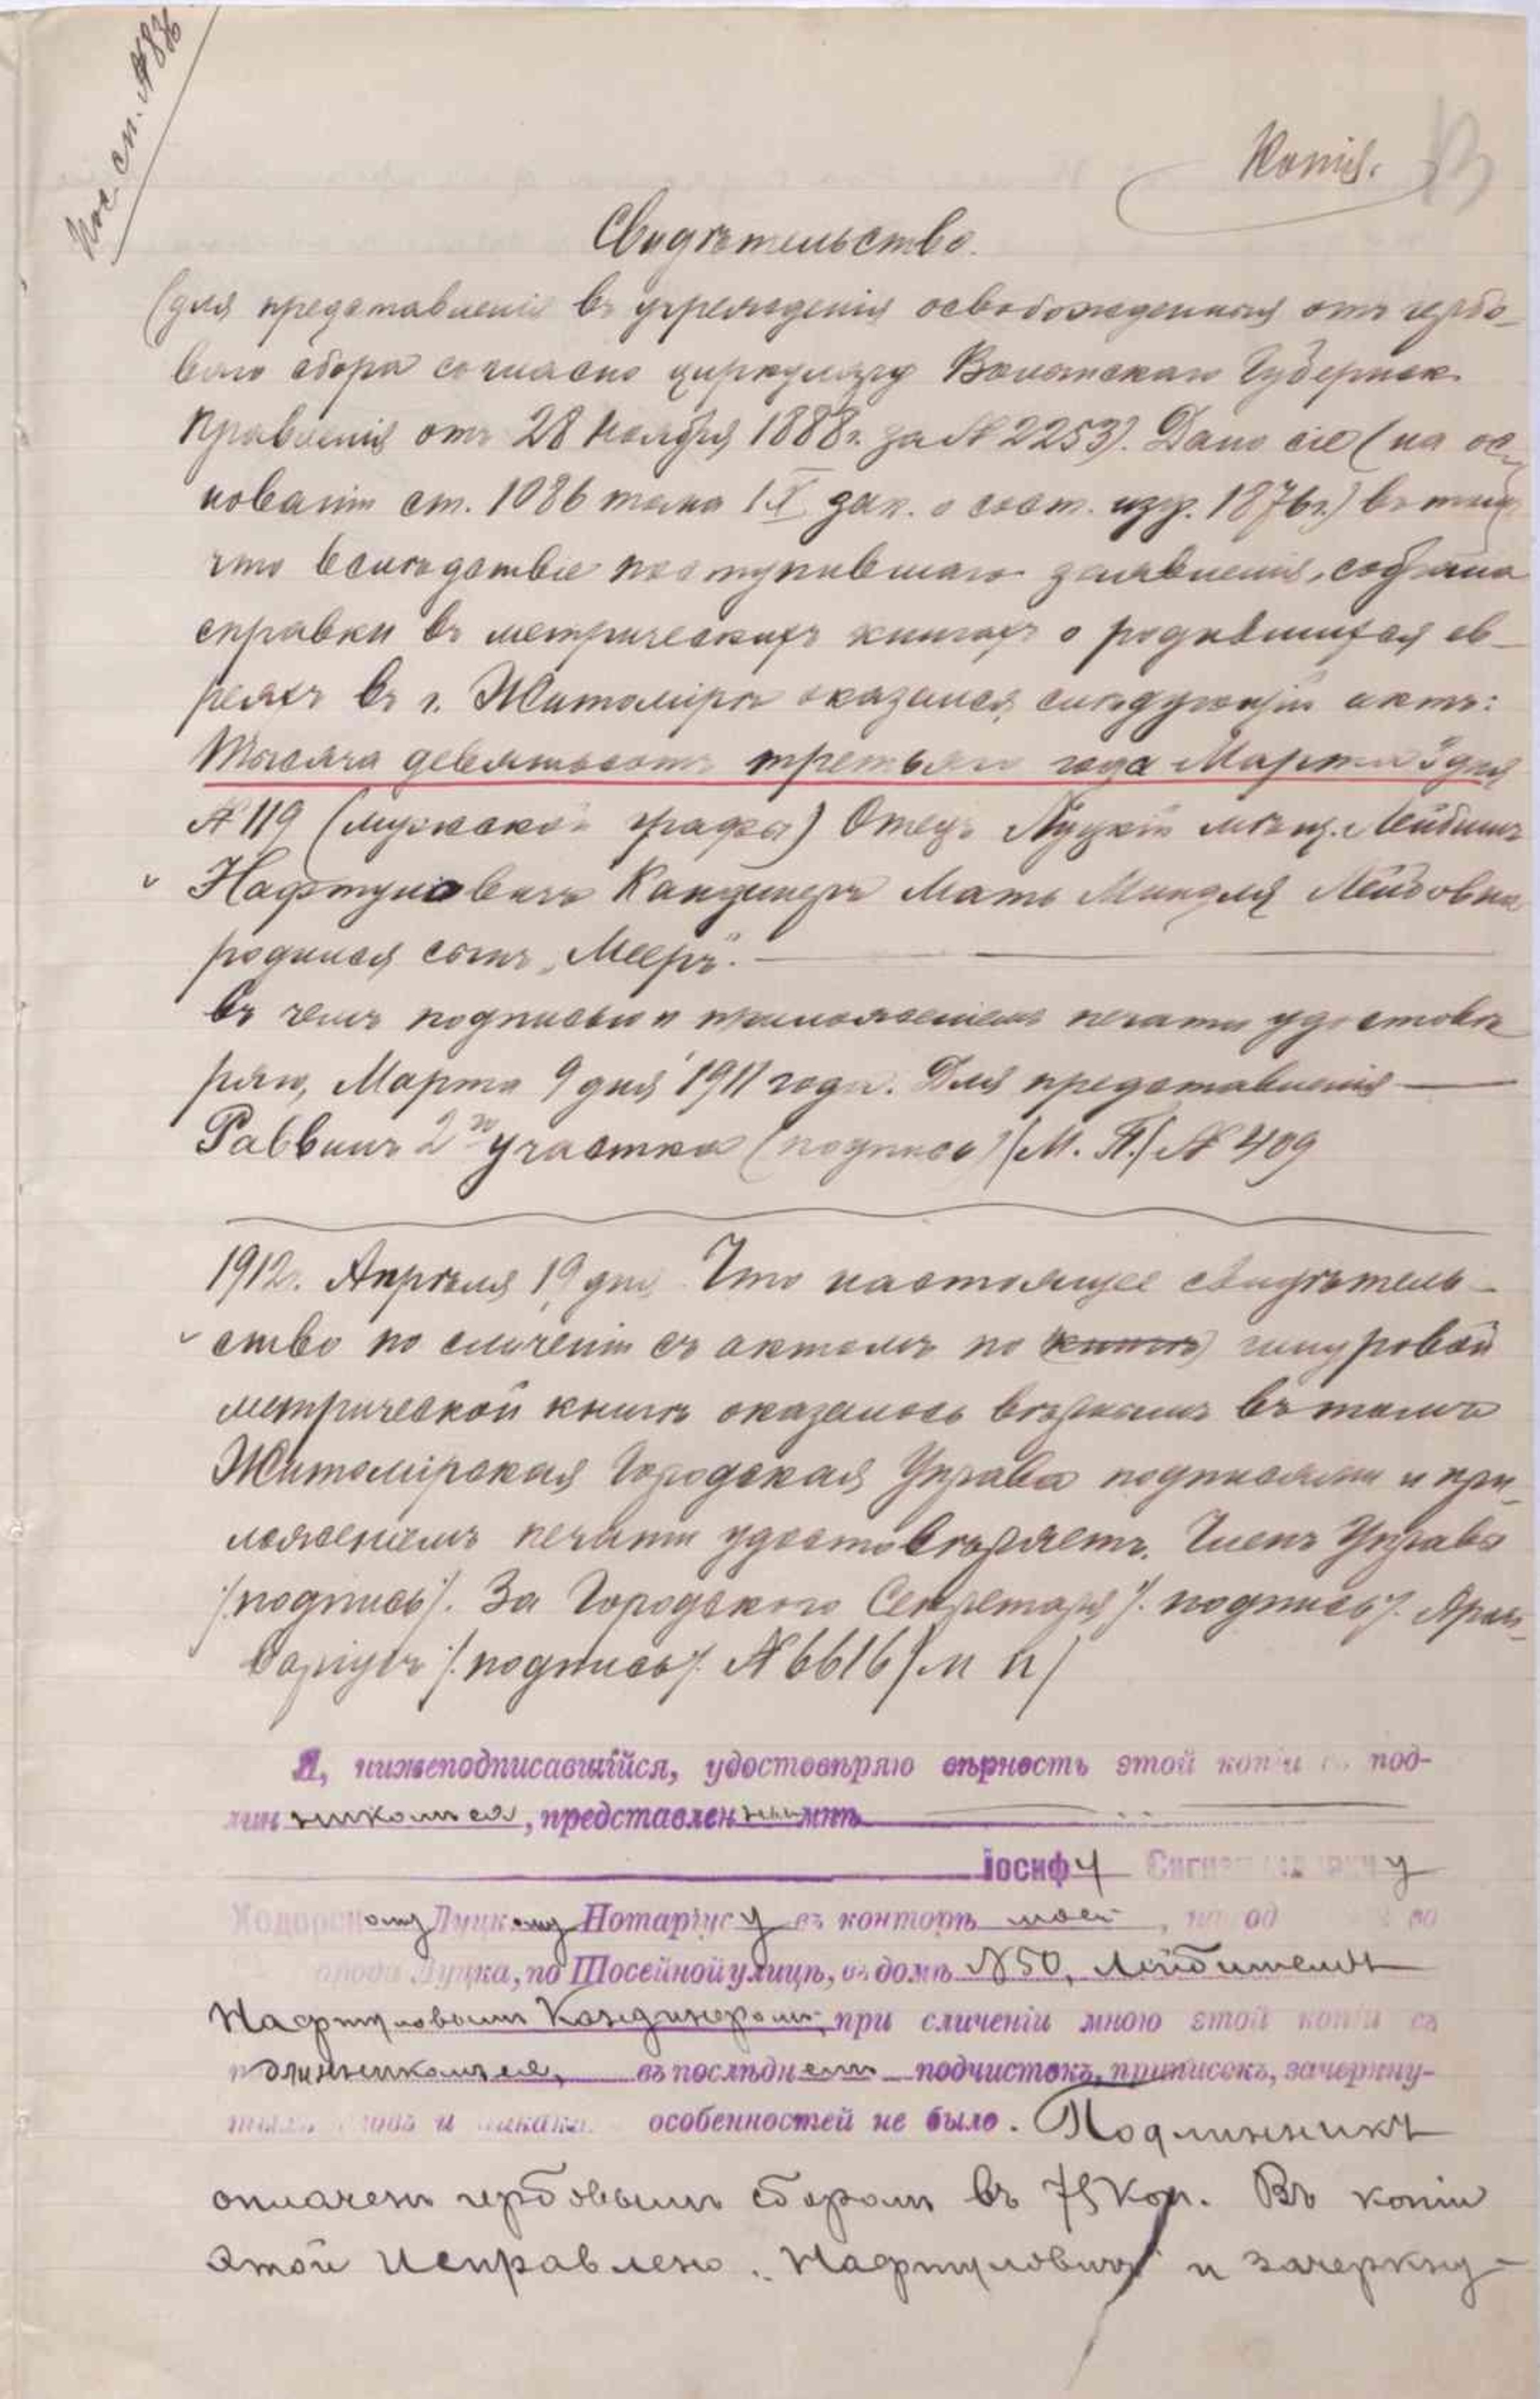 Пос. сп. № 836
Копія.
13
Свидѣтельство.
(для представленія въ учрежденія освобожденныя отъ гербо-
ваго сбора согласно циркуляру Волынскаго Губернск.
Правленія отъ 28 Ноября 1888 г. за № 2253). Дано сіе (на ос-
нованіи ст. 1086 тома IX зак. о сост. изд. 1876 г.) въ томъ
что вслѣдствіе поступившаго заявленія,
справки въ метрическихъ книгахъ о родившихся ев-
реяхъ въ г. Житомірѣ оказался слѣдующій актъ:
Тысяча девятьсотъ третьяго года Марта 3 дня
№ 119 (мужской графы) Отецъ Луцкій мѣщ. Лейбишъ
Нафтуловичъ Кандинеръ Мать Миндля Лейбовна
родился сынъ „Мееръ".
въ чемъ подписью и приложеніемъ печати удостовѣ
ряю, Марта 9 дня 1911 года. Для представленія
Раввинъ 2го участка (подпись) (М. П.) № 409
1912 г. Апрѣля 19 дня Что настоящее свидѣтель-
ство по сличеніи съ актомъ по книгѣ шнуровой
метрической книгѣ оказалось вѣрнымъ въ томъ
Житомірская Городская Управа подписями и при-
ложеніемъ печати удостовѣряетъ. Членъ Управы
/подпись/. За Городского Секретаря /. подпись /. Архи-
варіусъ /. подпись /. № 6616 / М П /
Я, нижеподписавшійся, удостовѣряю вѣрность этой копіи съ под-
линникомъ ея, представленнымъ мнѣ
Іосифу
Ходорскому Луцкому Нотаріусу въ конторѣ моей,
города Луцка, по Шосейной улицѣ, въ домѣ № 50, Лейбишемъ
Нафтуловымъ Кандинеромъ, при сличеніи мною этой копіи съ
подлинникомъ ея, въ послѣднемъ подчистокъ, приписокъ, зачеркну-
тыхъ словъ и никакихъ особенностей не было. Подлинникъ
оплаченъ гербовымъ сборомъ въ 75 коп. Въ копіи
этой исправлено „Нафтуловичъ" и зачеркну-